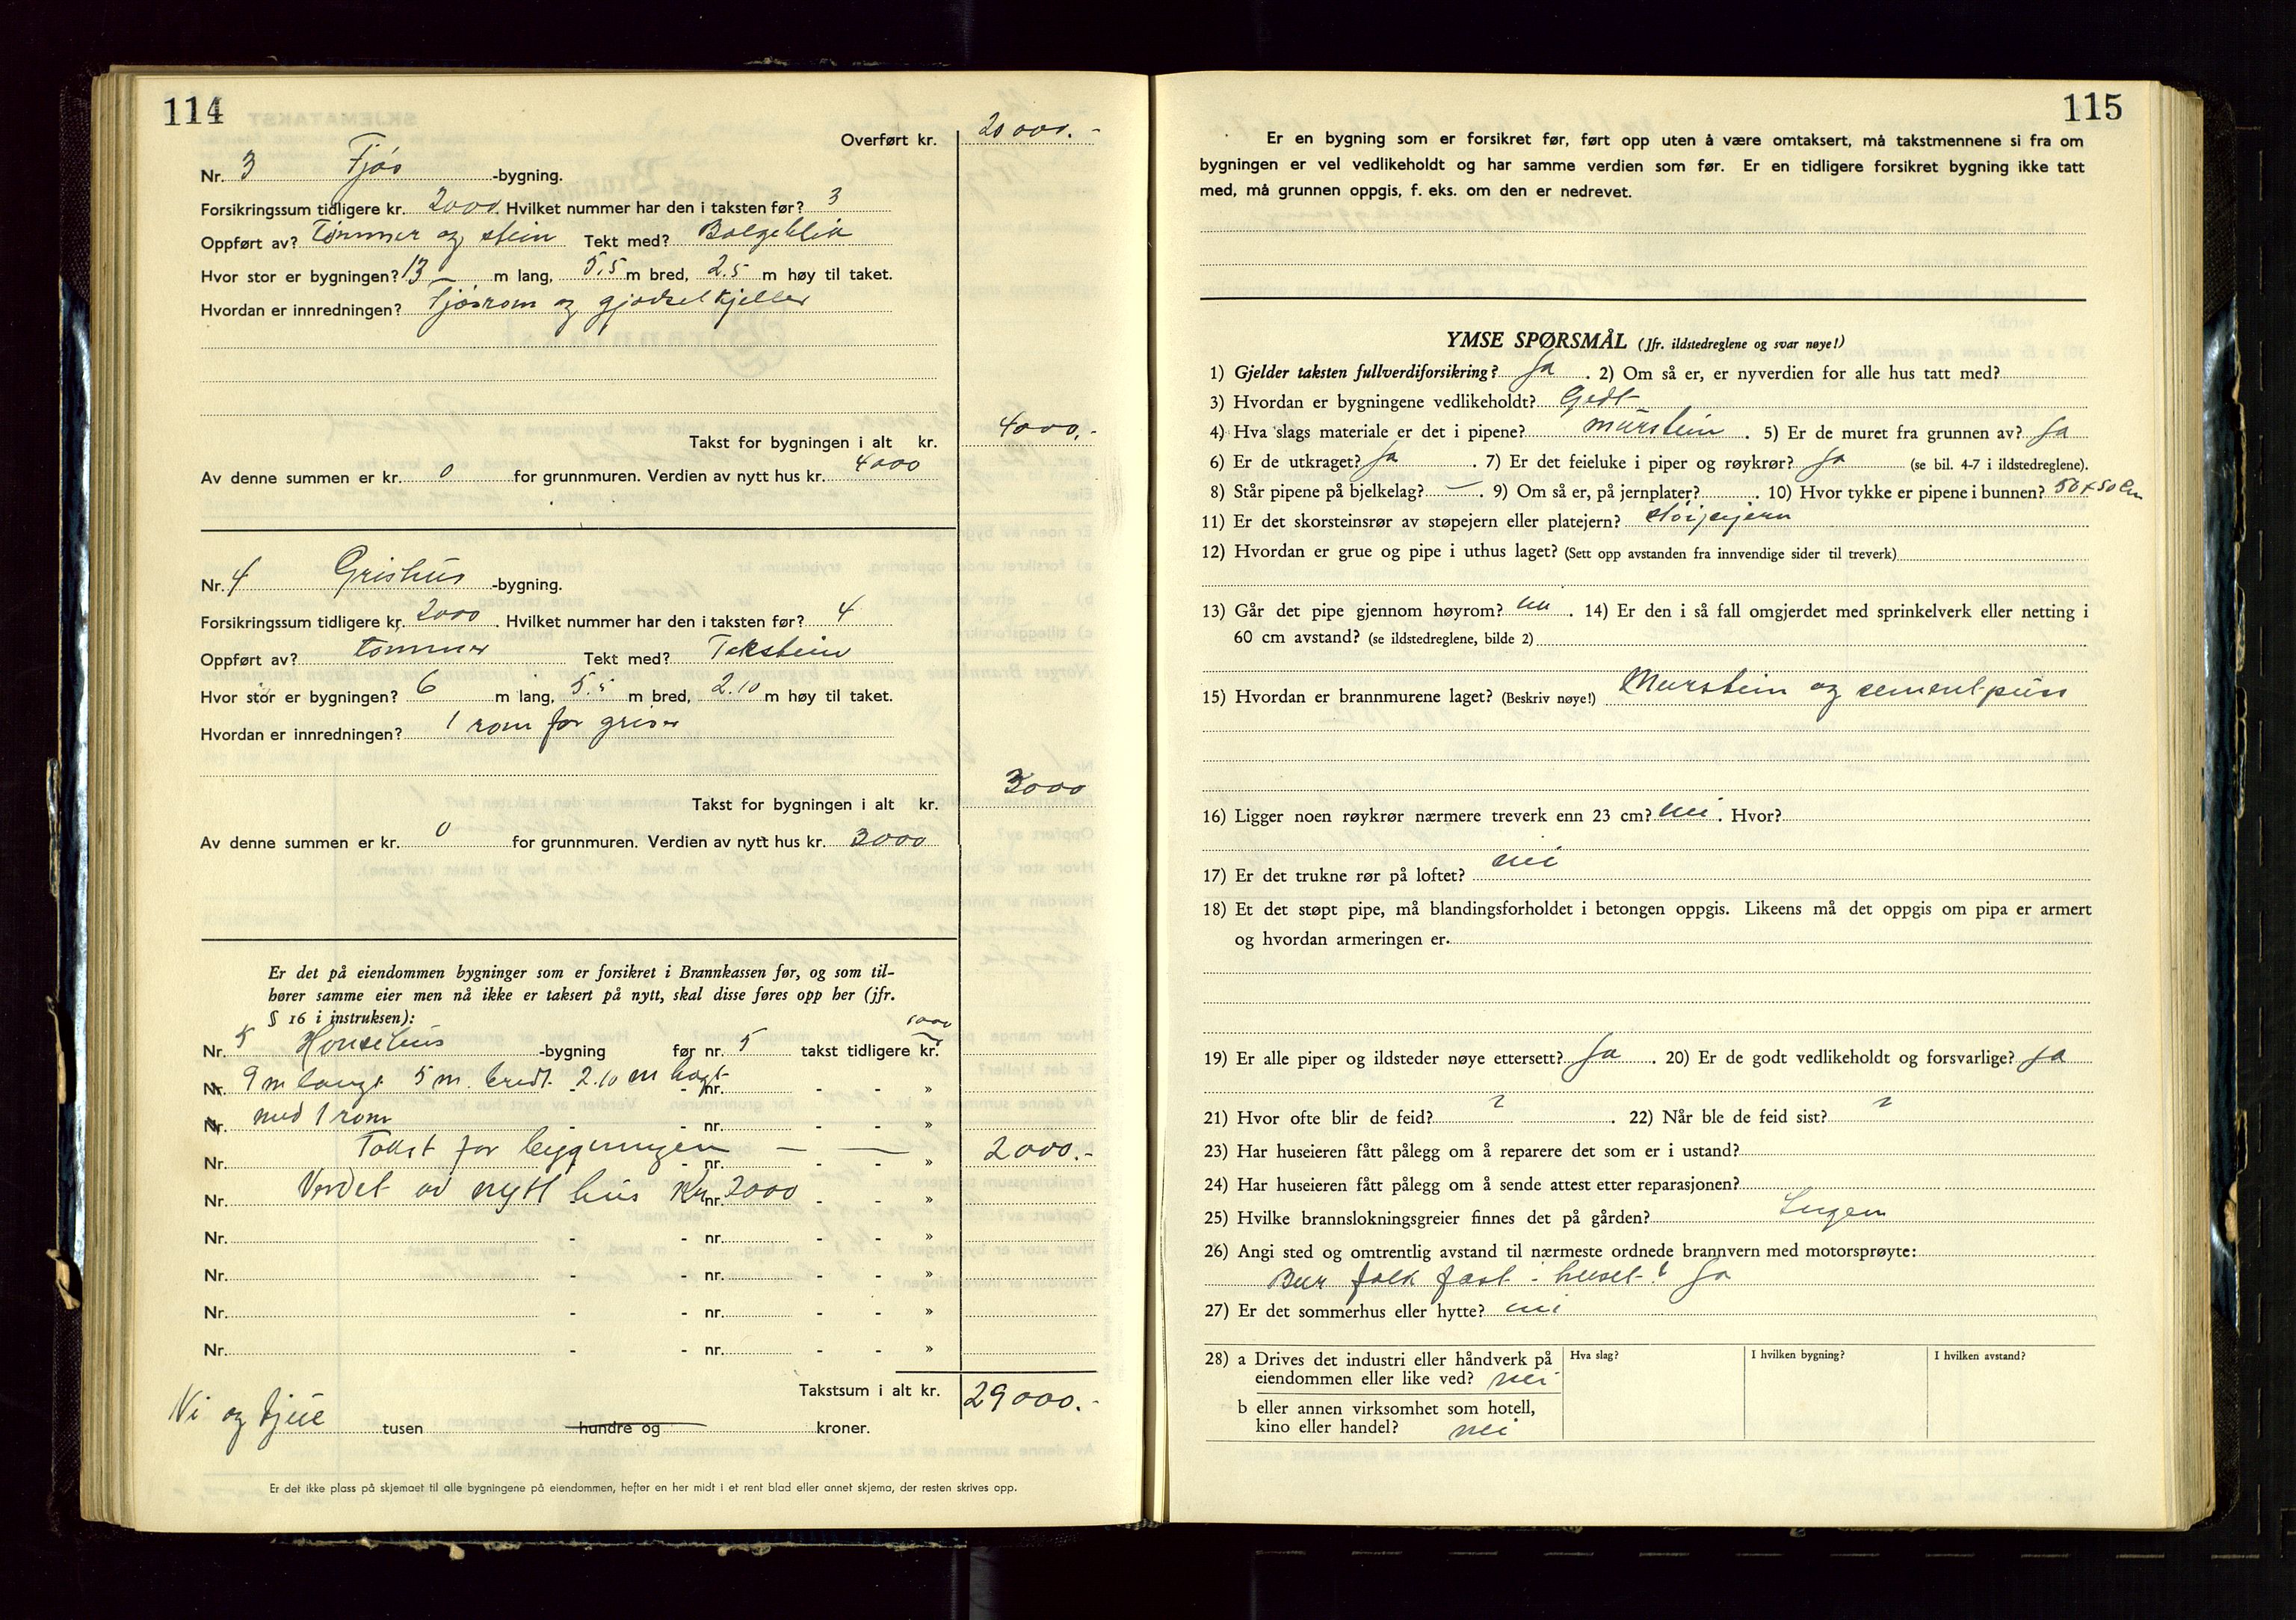 114
Overført kr. 20 000.-
Nr. 3 Fjøs -bygning.
Forsikringssum tidligere kr. 2000. Hvilket nummer har den i taksten før? 3
Oppført av? Tømmer og stein Tekt med? Bølgeblik
Hvor stor er bygningen? 13 - m lang, 5,5 m bred, 2.5 m høy til taket.
Hvordan er innredningen? Fjøsrom og gjødselkjeller
Takst for bygningen i alt kr. 4000.-
Av denne summen er kr. 0 for grunnmuren. Verdien av nytt hus kr. 4000
Nr. 4 Grishus -bygning.
Forsikringssum tidligere kr. 2000. Hvilket nummer har den i taksten før? 4
Oppført av? tømmer Tekt med? Tekstein
Hvor stor er bygningen? 6 m lang, 5.5 m bred, 2.10 m høy til taket.
Hvordan er innredningen? 1 rom for griser
Takst for bygningen i alt kr. 3000
Av denne summen er kr. 0 for grunnmuren. Verdien av nytt hus kr. 3000
Er det på eiendommen bygninger som er forsikret i Brannkassen før, og som til-
hører samme eier men nå ikke er taksert på nytt, skal disse føres opp her (jfr.
§ 16 i instruksen): 1000
Nr. 5 Hønsehus -bygning før nr. 5 takst tidligere kr.
Nr. 9 m langt 5 m. bredt 2.10 m høgt - nr. - - »
Nr. med 1 rom - - nr. - - »
Nr. Takst for byggningen - nr. - - » 2000.-
Nr. Verdet av nytt hus Kr. nr. 2000 - - »
Nr. - - nr. - - »
Nr. - - nr. - - »
Nr. - - nr. - - »
Nr. - - nr. - - »
Takstsum i alt kr. 29000.-
Ni og tjue tusen hundre og kroner.
Er det ikke plass på skjemaet til alle bygningene på eiendommen, hefter en her midt i et rent blad eller annet skjema, der resten skrives opp.
115
Er en bygning som er forsikret før, ført opp uten å være omtaksert, må takstmennene si fra om
bygningen er vel vedlikeholdt og har samme verdien som før. Er en tidligere forsikret bygning ikke tatt
med, må grunnen oppgis, f. eks. om den er nedrevet.
YMSE SPØRSMÅL (Jfr. ildstedreglene og svar nøye!)
1) Gjelder taksten fullverdiforsikring? Ja. 2) Om så er, er nyverdien for alle hus tatt med?
3) Hvordan er bygningene vedlikeholdt? Godt
4) Hva slags materiale er det i pipene? murstein. 5) Er de muret fra grunnen av? Ja
6) Er de utkraget? Ja. 7) Er det feieluke i piper og røykrør? Ja (se bil. 4-7 i ildstedreglene).
8) Står pipene på bjelkelag? -. 9) Om så er, på jernplater? . 10) Hvor tykke er pipene i bunnen? 50 x 50 cm
11) Er det skorsteinsrør av støpejern eller platejern? støipejern
12) Hvordan er grue og pipe i uthus laget? (Sett opp avstanden fra innvendige sider til treverk)
13) Går det pipe gjennom høyrom? nei. 14) Er den i så fall omgjerdet med sprinkelverk eller netting i
60 cm avstand? (se ildstedreglene, bilde 2)
15) Hvordan er brannmurene laget? (Beskriv nøye!) Murstein og sementpuss
16) Ligger noen røykrør nærmere treverk enn 23 cm? nei. Hvor?
17) Er det trukne rør på loftet? nei
18) Et det støpt pipe, må blandingsforholdet i betongen oppgis. Likeens må det oppgis om pipa er armert
og hvordan armeringen er.
19) Er alle piper og ildsteder nøye ettersett? Ja. 20) Er de godt vedlikeholdt og forsvarlige? Ja
21) Hvor ofte blir de feid? ? . 22) Når ble de feid sist? ?
23) Har huseieren fått pålegg om å reparere det som er i ustand?
24) Har huseieren fått pålegg om å sende attest etter reparasjonen?
25) Hvilke brannslokningsgreier finnes det på gården? Ingen
26) Angi sted og omtrentlig avstand til nærmeste ordnede brannvern med motorsprøyte:
Bur folk fast i huset? Ja
27) Er det sommerhus eller hytte? nei
28) a Drives det industri eller håndverk på eiendommen eller like ved? nei
Hva slag? I hvilken bygning? I hvilken avstand?
b eller annen virksomhet som hotell,
kino eller handel? nei